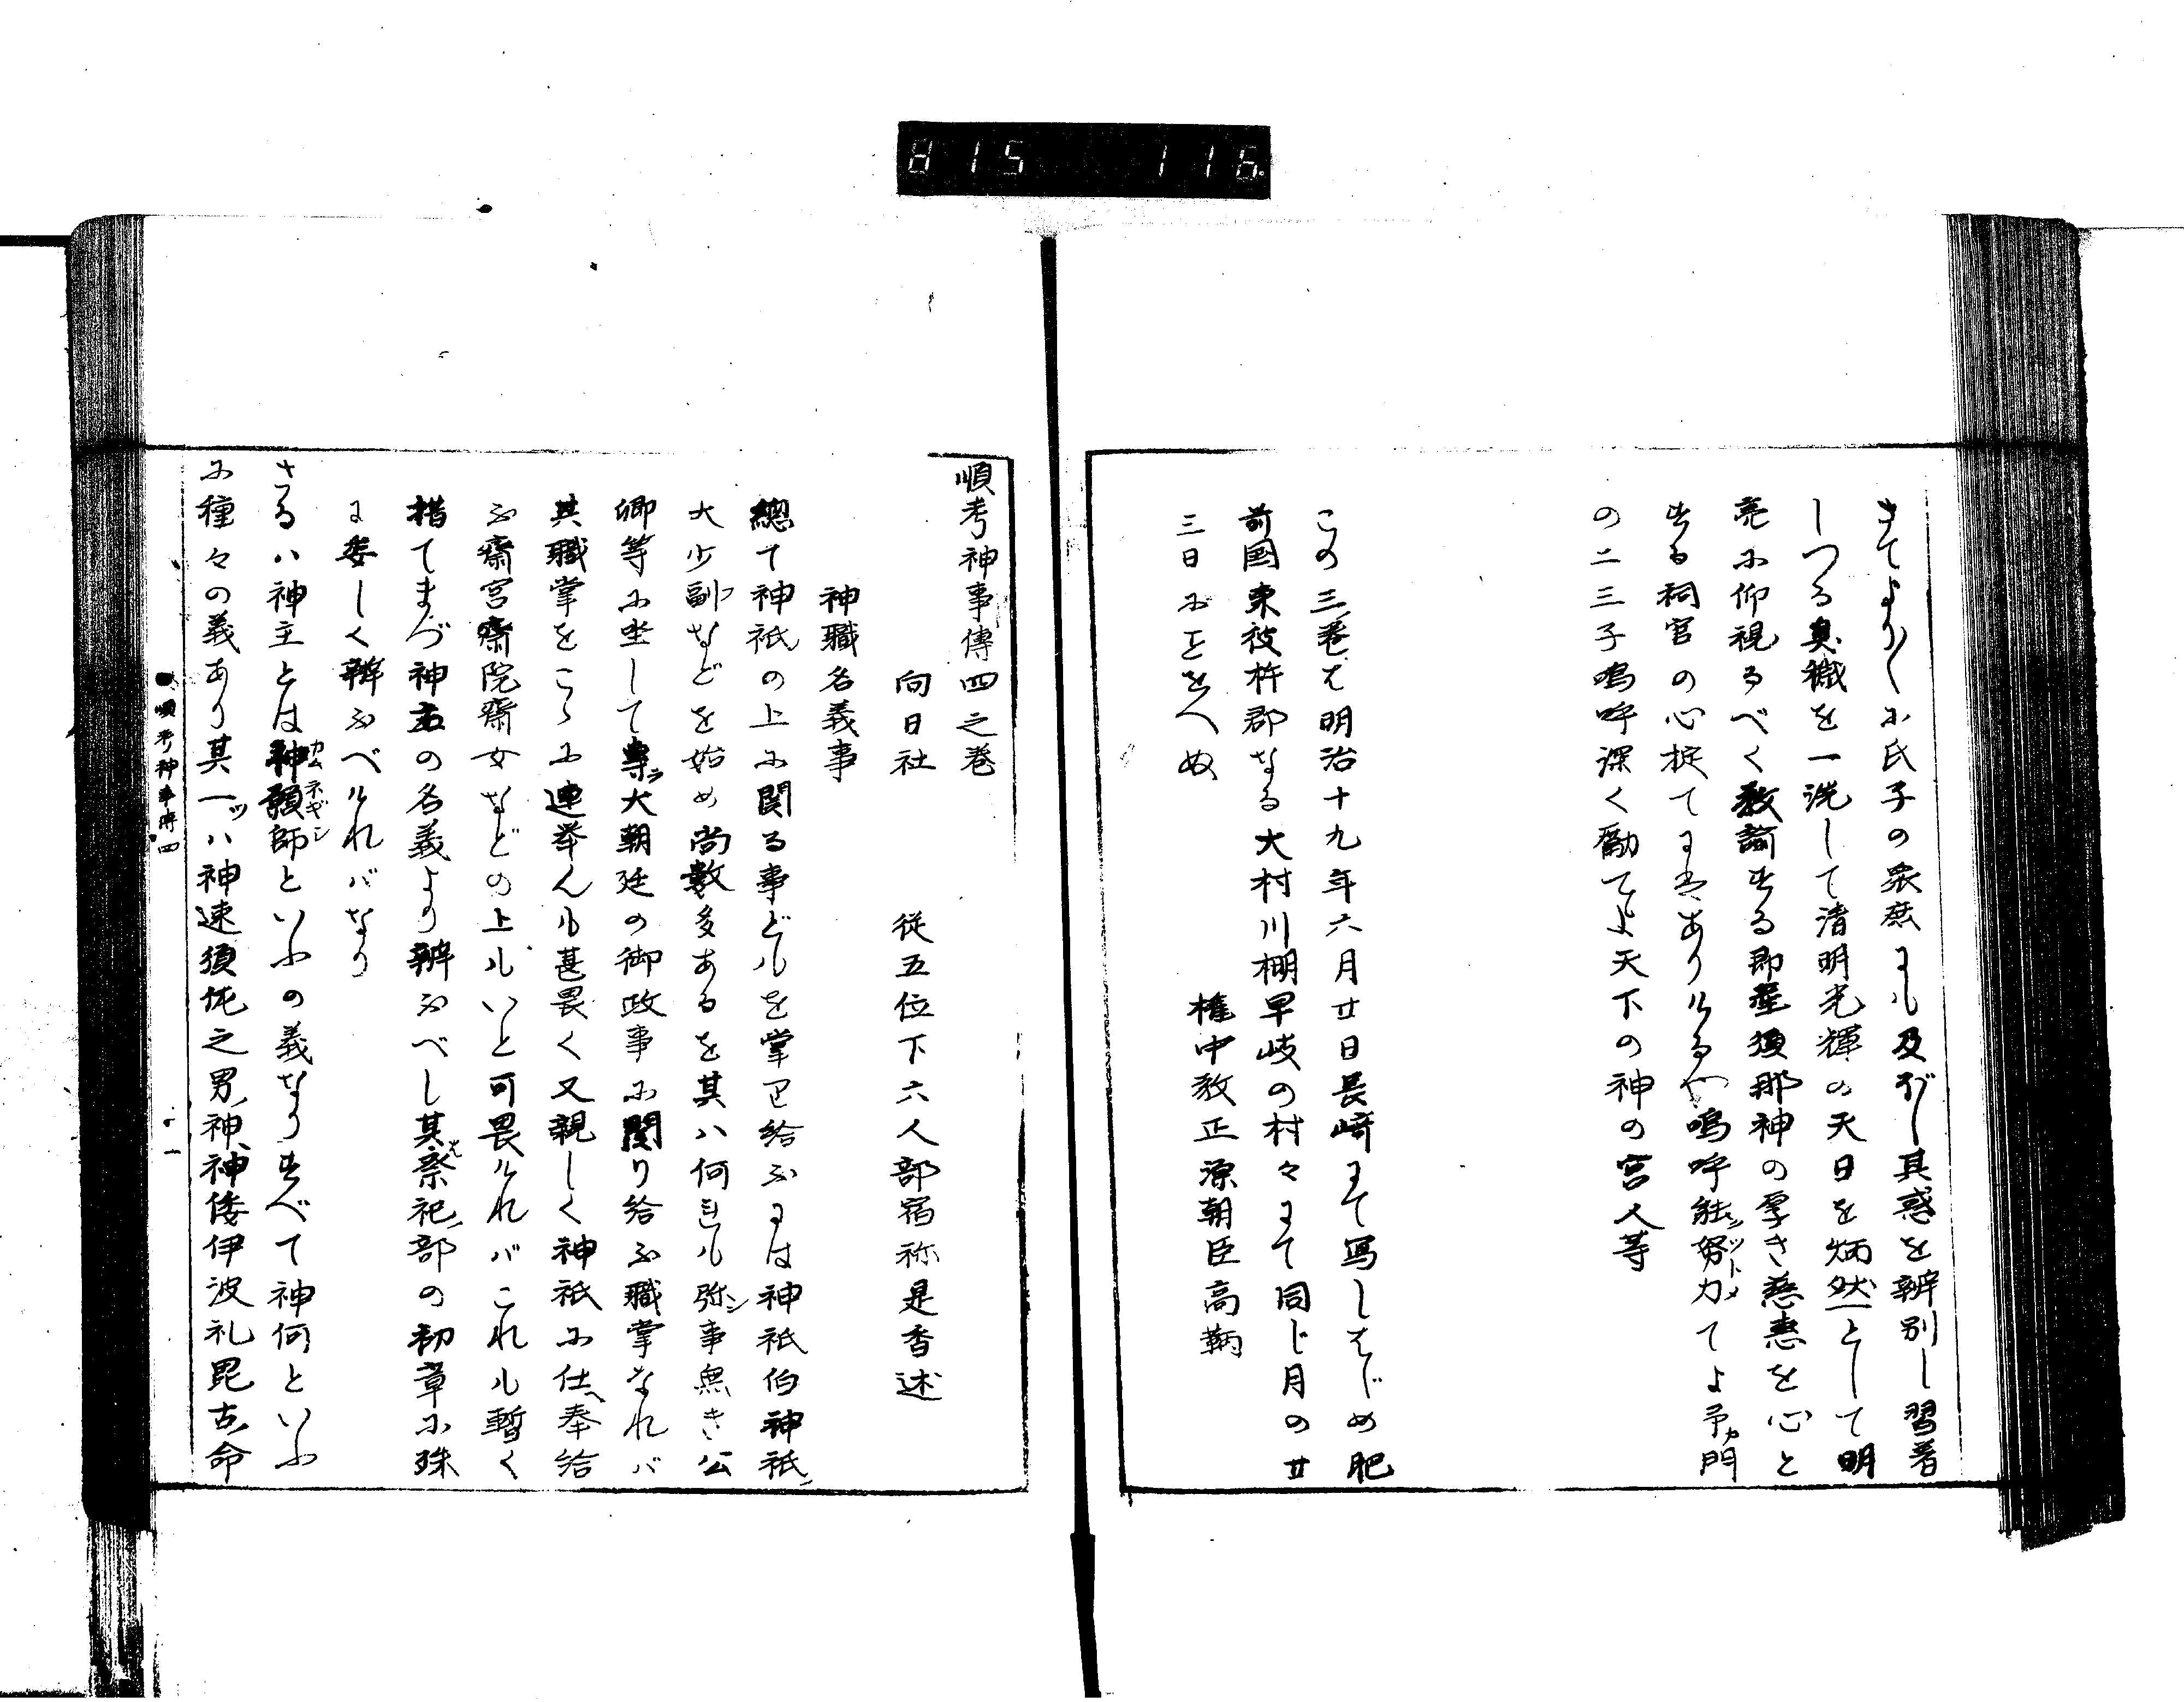 815 116.
きてよりしに氏子の衆庶にも及ぼし其惑を辨別し習着
しつる臭穢を一洗して清明光輝の天日を炳然として明
亮に仰視るべく教諭する即産須那神の厚き慈恵を心と
する祠官の心掟てにはありけるや嗚呼能努力てよ予門
の二三子嗚呼深く勵てよ天下の神の宮人等
この三巻は明治十九年六月廿日長崎にて写しはじめ肥
前国東彼杵郡なる大村川棚早岐の村々にて同じ月の廿
三日にをへぬ
権中教正源朝臣高鞆
順考神事傳四之巻
向日社 従五位下六人部宿祢是香述
神職名義事
總て神祇の上に関る事どもを掌り給ふには神祇伯神祇ノ
大少副などを始め尚数多あるを其ハ何れも弥事無き公
卿等に坐して大朝廷の御政事に関り給ふ職掌なれバ
其職掌をこゝに連挙んも甚畏く又親しく神祇に仕ヘ奉給
ふ齋宮齋院齋女などの上もいと可畏ければこれも暫く
措てまづ神主の名義より辨ふべし其祭祀ノ部の初章に殊
に委しく辨ふべければなり
さるハ神主とは神願師カムネギシといふの義なりすべて神何といふ
に種々の義あり其一ツハ神速須佐之男ノ神、神倭伊波礼毘古ノ命
順考神事傳四 一